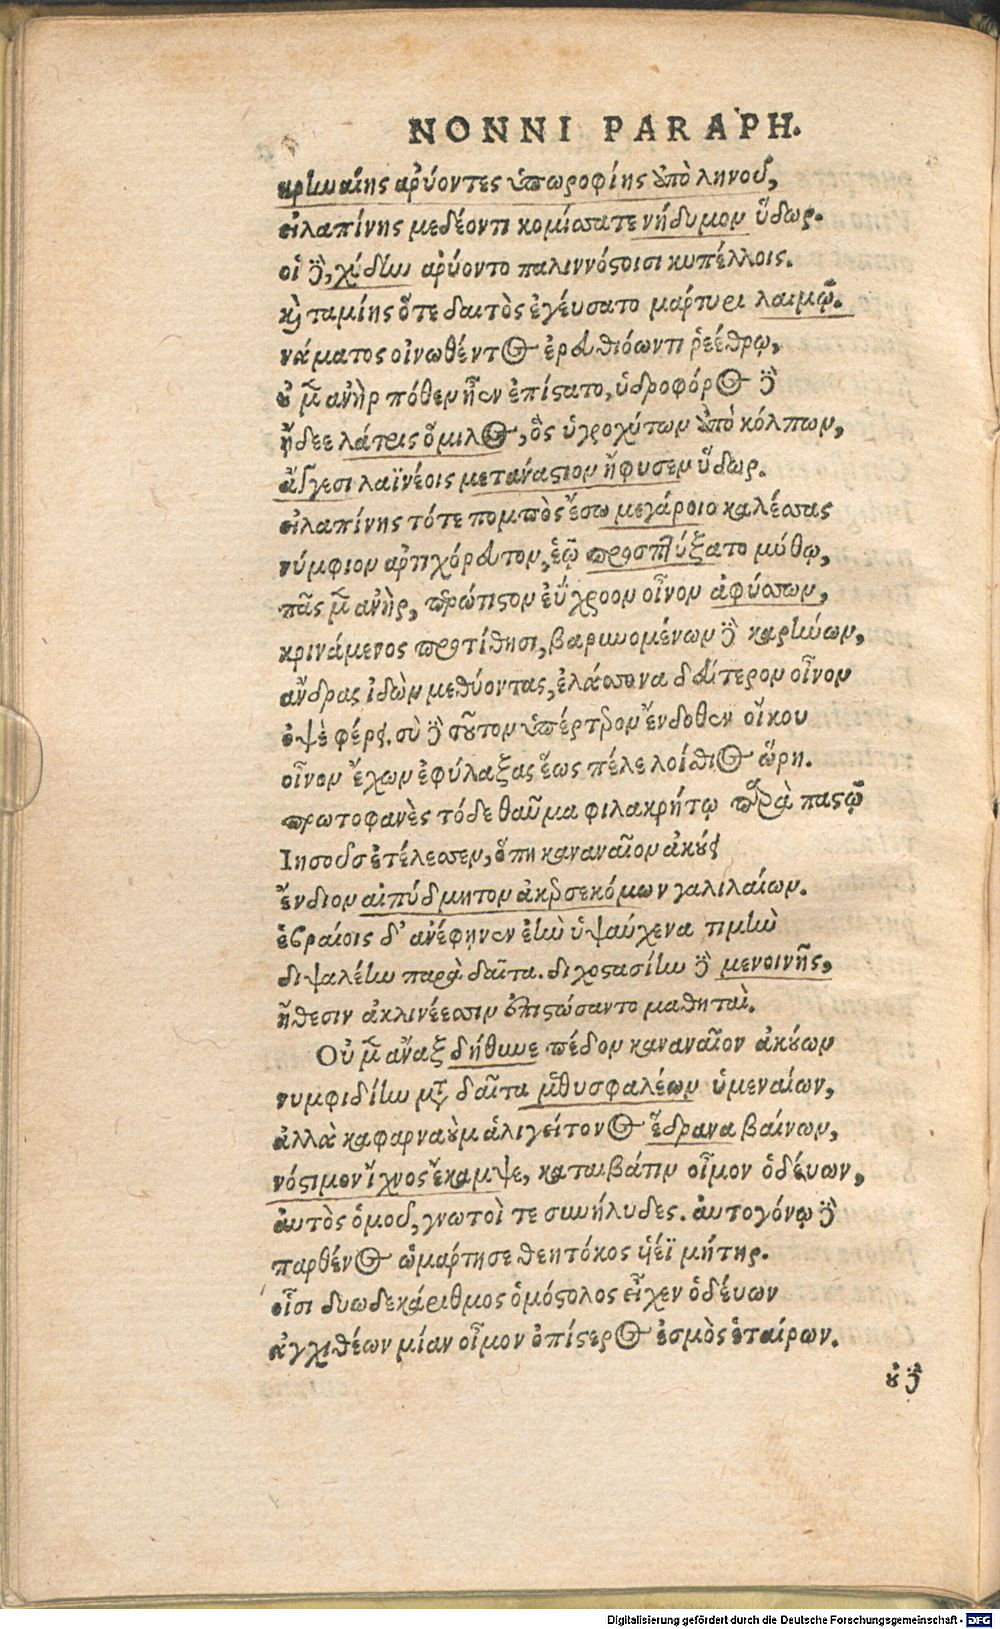 NONNI PARAPH.
ἀρτιναίης ἀρύοντες ὑπωροφίης ἀπὸ ληνοῦ,
εἰλαπίνης μεδέοντι κομίσσατε νήδυμον ὕδωρ.
οἱ δὲ, χύδην ἀρύοντο παλιννόστοισι κυπέλλοις.
καὶ ταμίης ὅτε δαιτὸς ἐγεύσατο μάρτυρι λαιμῷ.
νάματος οἰνωθέντος ἐρευθιόωντι ῥεέθρῳ,
οὐ μὲν ἀνὴρ πόθεν ἦεν ἐπίστατο, ὑδροφόρος δὲ
ᾔδεε λάτρις ὅμιλος, ὃς ὑγροχύτων ἀπὸ κόλπων,
ἄγγεσι λαϊνέοις μετανάστιον ἤφυσεν ὕδωρ.
εἰλαπίνης τότε πομπὸς ἔσω μεγάροιο καλέσσας
νύμφιον ἀρτιχόρευτον, ἑῷ προσπτύξατο μύθῳ,
πᾶς μὲν ἀνὴρ, πρώτιστον ἐΰχροον οἶνον ἀφύσσων,
κρινάμενος προτίθησι, βαρυνομένων δὲ καρήνων,
ἄνδρας ἰδὼν μεθύοντας, ἐλάσσονα δεύτερον οἶνον
ὀψὲ φέρει. σὺ δὲ τοῦτον ὑπέρτερον ἔνδοθεν οἴκου
οἶνον ἔχων ἐφύλαξας ἕως πέλε λοίσθιος ὥρη.
πρωτοφανὲς τόδε θαῦμα φιλακρήτῳ παρὰ παστῷ
Ἰησοῦς ἐτέλεσσεν, ὅπη καναναῖον ἀκούει
ἔνδιον αἰπύδμητον ἀκερσεκόμων γαλιλαίων.
ἑβραίοις δ' ἀνέφηνεν ἑὴν ὑψαύχενα τιμὴν
διψαλέην παρὰ δαῖτα. διχοστασίην δὲ μενοινῆς,
ἤθεσιν ἀκλινέεσσιν ἐπιστώσαντο μαθηταί.
Οὐ μὲν ἄναξ δήθυνε πέδον καναναῖον ἀκούων
νυμφιδίην μετὰ δαῖτα μεθυσφαλέων ὑμεναίων,
ἀλλὰ καφαρναοὺμ ἁλιγείτονος ἕδρανα βαίνων,
νόστιμον ἴχνος ἔκαμψε, καταιβάτιν οἶμον ὁδεύων,
αὐτὸς ὁμοῦ, γνωτοί τε συνήλυδες. αὐτογόνῳ δὲ
παρθένος ὡμάρτησε θεητόκος υἱέϊ μήτηρ.
οἷσι δυωδεκάριθμος ὁμόστολος εἶχεν ὁδεύων
ἀγχιθέων μίαν οἶμον ὀπίστερος ἑσμὸς ἑταίρων.
οὐ δὲ
Digitalisierung gefördert durch die Deutsche Forschungsgemeinschaft - DFG